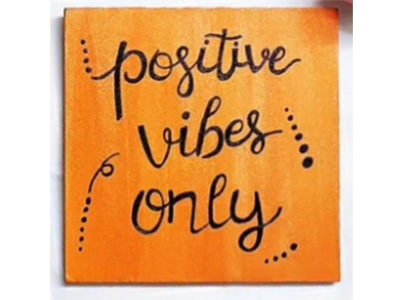 positive
vibes
only